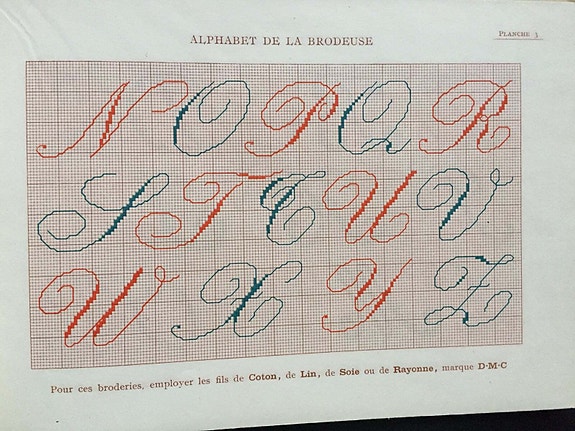 ALPHABET DE LA BRODEUSE
PLANCHE 3
N O P Q R
S T T U V
W X Y Z
Pour ces broderies, employer les fils de Coton, de Lin, de Soie ou de Rayonne, marque D·M·C